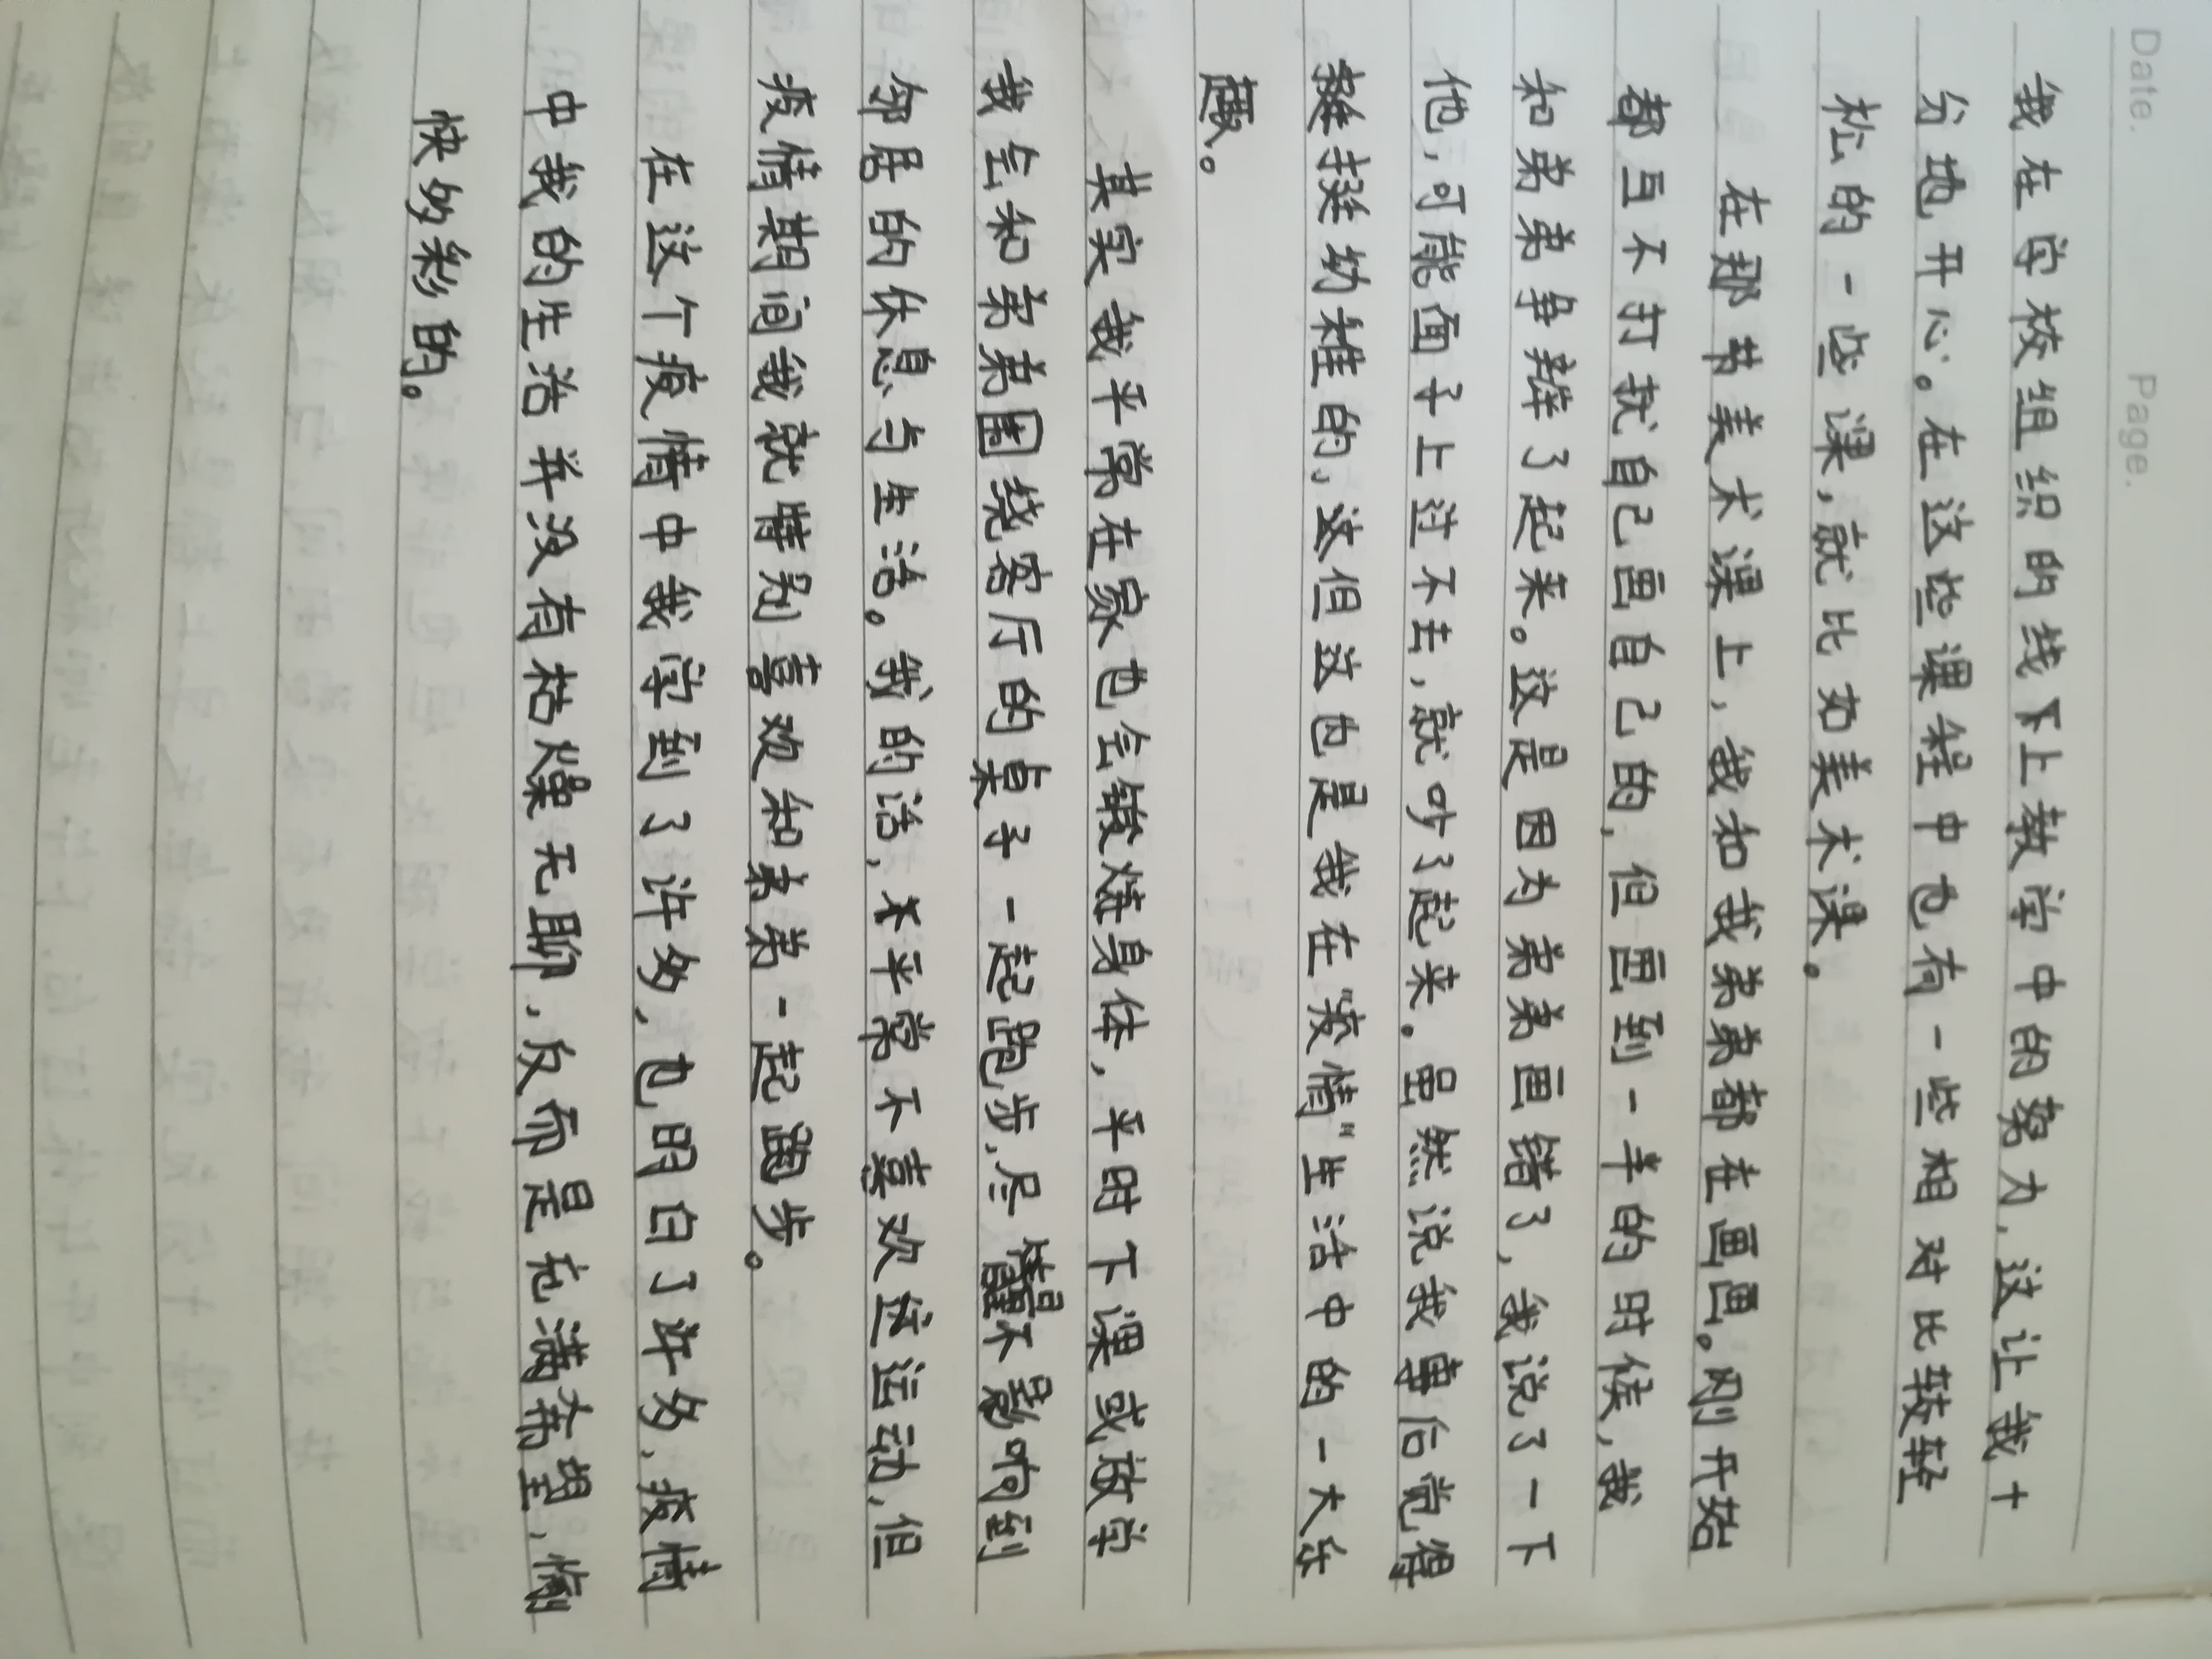 Date. Page.
我在学校组织的线上教学中的努力,这让我十
分地开心。在这些课程中也有一些相对比较轻
松的一些课,就比如美术课。
在那节美术课上,我和我弟弟都在画画。刚开始
都互不打扰自己画自己的,但画到一半的时候,我
和弟弟争辩了起来。这是因为弟弟画错了,我说了一下
他,可能面子上过不去,就吵了起来。虽然说我事后觉得
挺挺幼稚的,这但这也是我在"疫情"生活中的一大乐
趣。
其实我平常在家也会锻炼身体,平时下课或放学
我会和弟弟围绕客厅的桌子一起跑步,尽量不影响到
邻居的休息与生活。我的话,平常不喜欢这运动,但
疫情期间我就特别喜欢和弟弟一起跑步。
在这个疫情中我学到了许多,也明白了许多,疫情
中我的生活并没有枯燥无聊,反而是充满希望,愉
快多彩的。